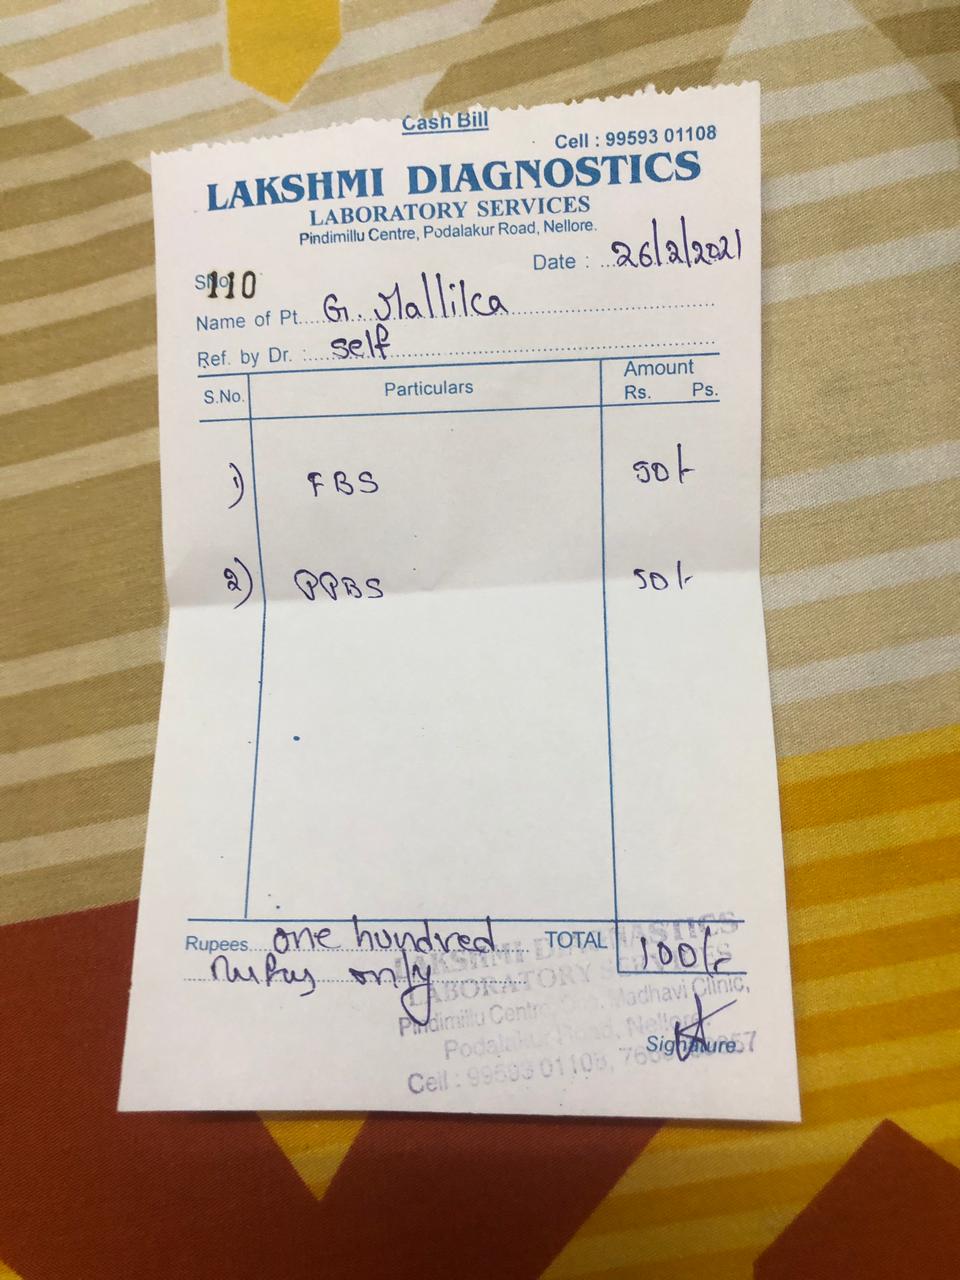 Cash Bill
Cell : 99593 01108
LAKSHMI DIAGNOSTICS
LABORATORY SERVICES
Pindimillu Centre, Podalakur Road, Nellore.
Date : 26/2/2021
SNo 110
Name of Pt. G. Mallika
Ref. by Dr. : self
S.No. Particulars Amount
Rs. Ps.
1) FBS 50/-
2) PPBS 50/-
Rupees one hundred TOTAL 100/-
only
LAKSHMI DIAGNOSTICS
LABORATORY SERVICES
Pindimillu Centre, Madhavi Clinic,
Podalakur Road, Nellore.
Signature
Cell : 99593 01108,